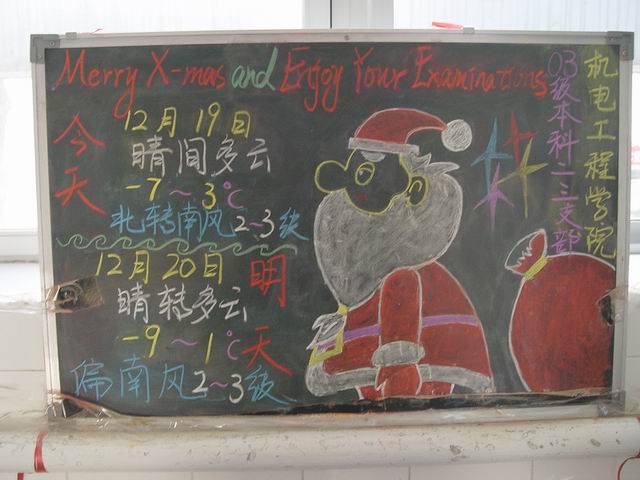 Merry X-mas and Enjoy Your Examinations
今天
12月19日
晴间多云
-7~3℃
北转南风2~3级
明天
12月20日
晴转多云
-9~1℃
偏南风2~3级
机电工程学院
03级本科一三支部